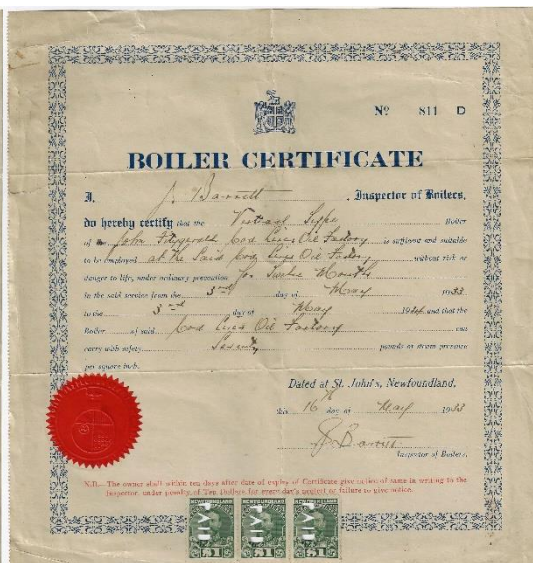 Nº 811 D
BOILER CERTIFICATE
I, J. Barrett, Inspector of Boilers,
do hereby certify that the Vertical Type Boiler
of John Fitzgerald Cod Liver Oil Factory is sufficient and suitable
to be employed at the Said Cod Liver Oil Factory without risk or
danger to life, under ordinary prevention for Twelve Months
in the said service from the 3rd day of May 1933
to the 3rd day of May 1934 and that the
Boiler of said Cod Liver Oil Factory can
carry with safety Seventy pounds of steam pressure
per square inch.
Dated at St. John's, Newfoundland,
this 16th day of May 1933
J. Barrett
Inspector of Boilers.
N.B.—The owner shall within ten days after date of expiry of Certificate give notice of same in writing to the
Inspector, under penalty of Ten Dollars for every day's neglect or failure to give notice.
NEWFOUNDLAND NEWFOUNDLAND
$1 $1 $1